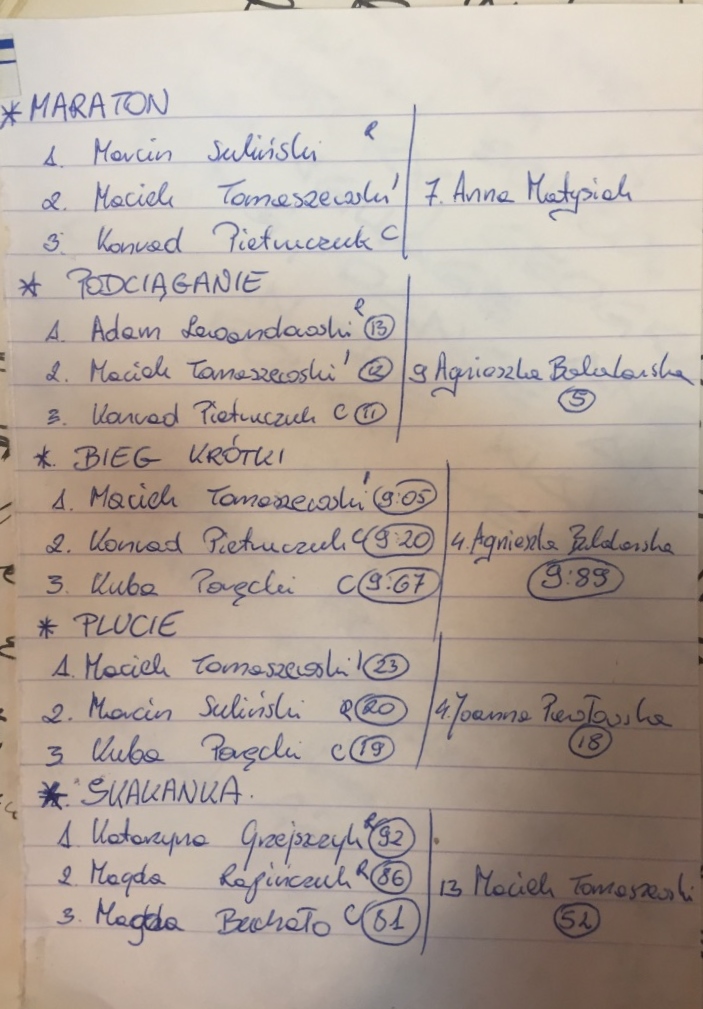 * MARATON
1. Marcin Suliński R
2. Maciek Tomaszewski ' 7. Anna Matysiak
3. Konrad Pietruczuk C
* PODCIĄGANIE
1. Adam Lewandowski R 13
2. Maciek Tomaszewski ' 12 9 Agnieszka
3. Konrad Pietruczuk C 11 5
* BIEG KRÓTKI
1. Maciek Tomaszewski ' 9:05
2. Konrad Pietruczuk C 9:20 4. Agnieszka
3. Kuba Paręcki C 9:67 9:89
* PLUCIE
1. Maciek Tomaszewski ' 23
2. Marcin Suliński R 20 4. Joanna Pawłowska
3 Kuba Paręcki C 19 18
* SKAKANKA.
1 Katarzyna Grzejszczyk R 92
2 Magda R 86 13 Maciek Tomaszewski
3. Magda Buchało C 81 52